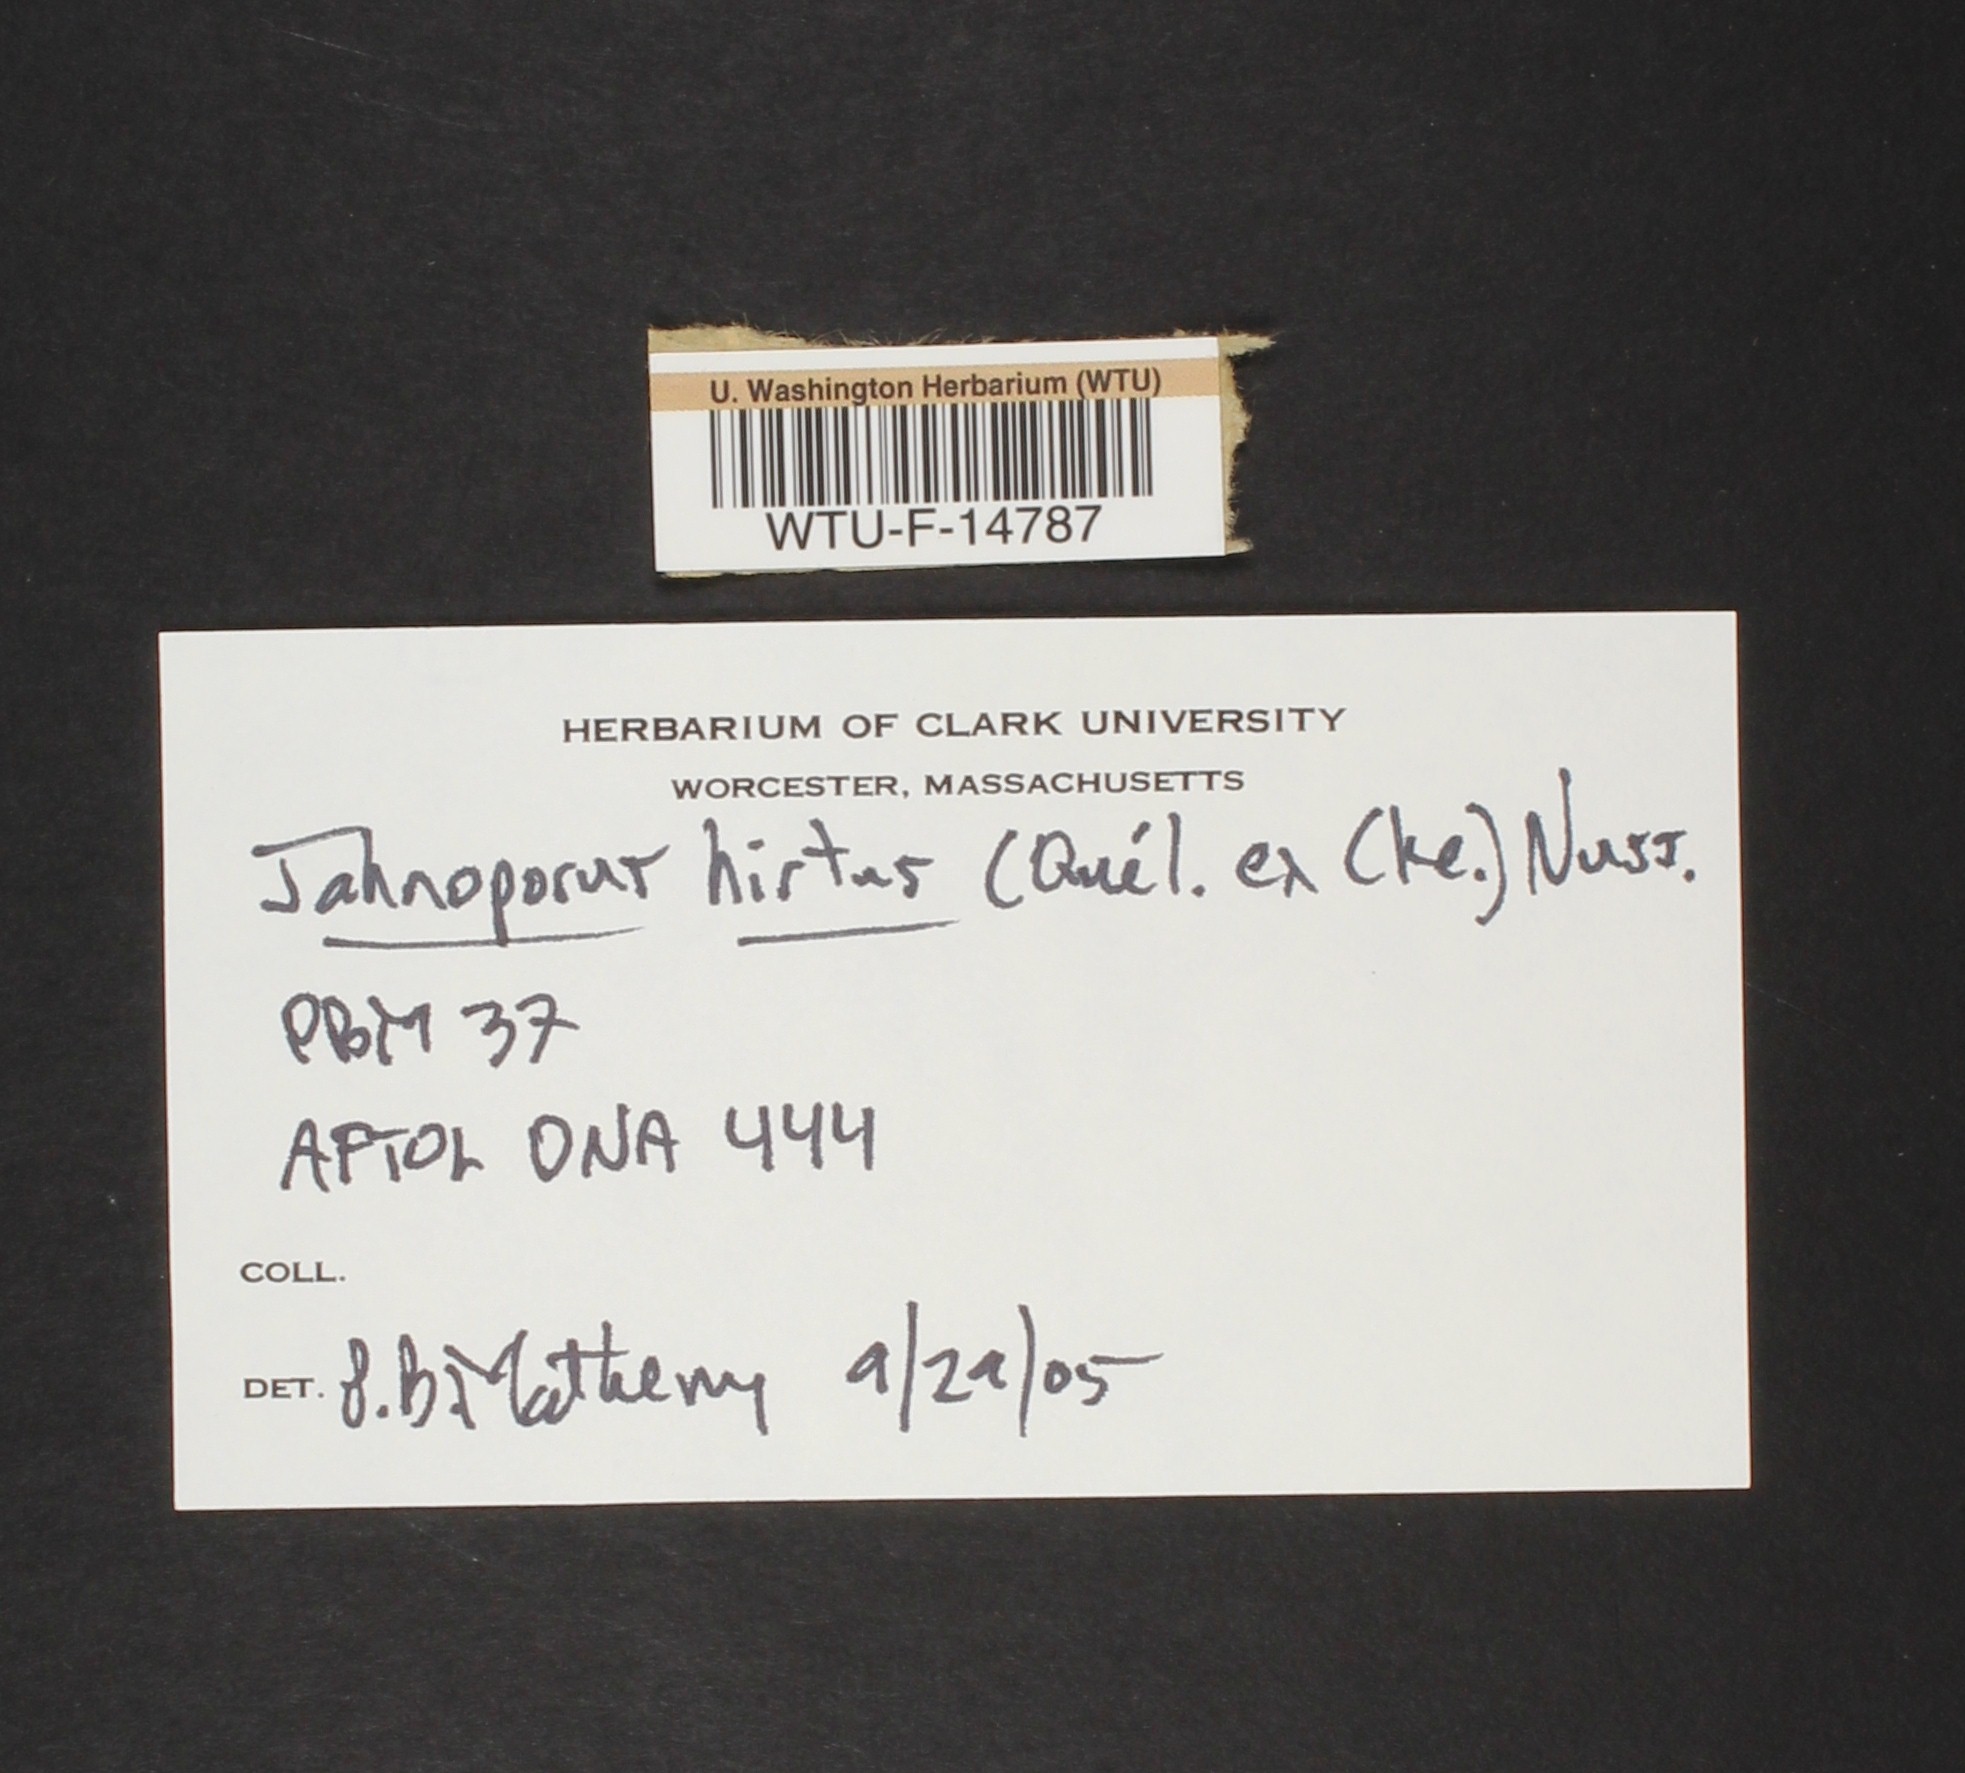 U. Washington Herbarium (WTU)
WTU-F-14787
HERBARIUM OF CLARK UNIVERSITY
WORCESTER, MASSACHUSETTS
Jahnoporus hirtus (Quél. ex Cke.) Nuss.
PBM 37
AFTOL DNA 444
COLL.
DET. P.B. Matheny 9/29/05